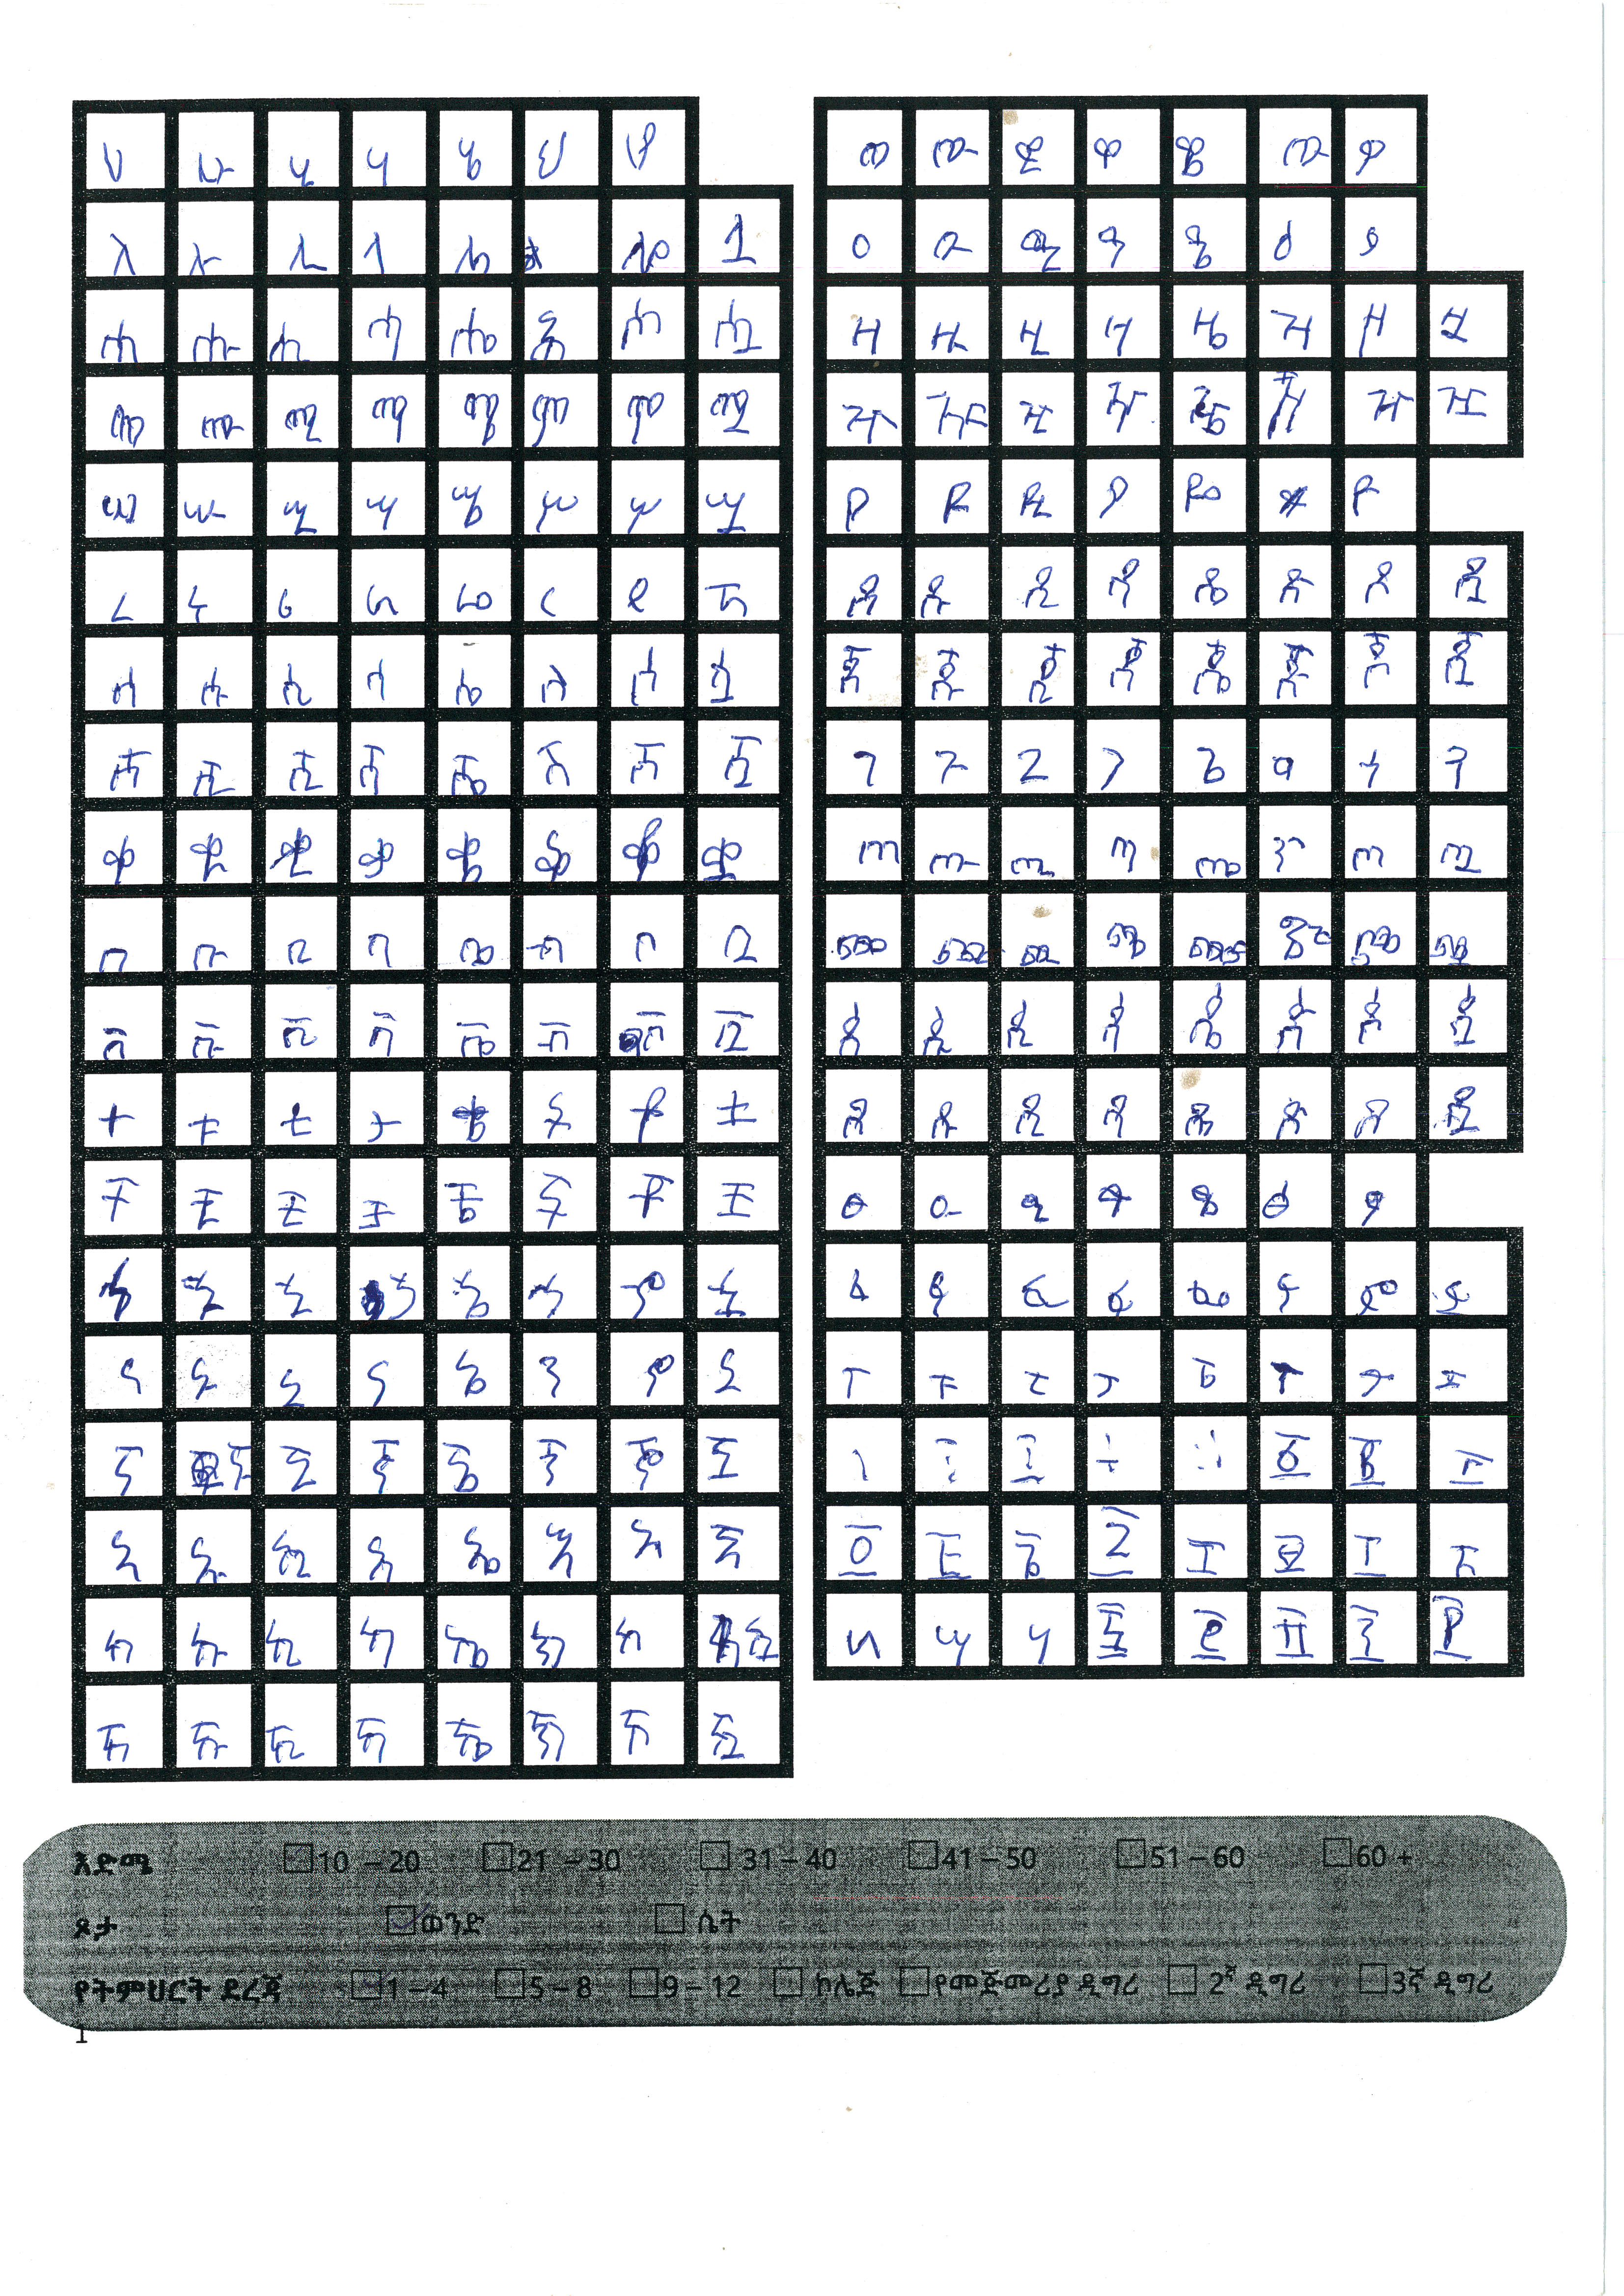 ሀ ሁ ሂ ሃ ሄ ህ ሆ
ለ ሉ ሊ ላ ሌ ሎ ሏ
ሐ ሑ ሒ ሓ ሔ ሕ ሖ ሗ
መ ሙ ሚ ማ ሜ ም ሞ ሟ
ሠ ሡ ሢ ሣ ሤ ሥ ሦ ሧ
ረ ሩ ሪ ራ ሬ ር ሮ ሯ
ሰ ሱ ሲ ሳ ሴ ስ ሶ ሷ
ሸ ሹ ሺ ሻ ሼ ሽ ሾ ሿ
ቀ ቁ ቂ ቃ ቄ ቅ ቆ ቋ
በ ቡ ቢ ባ ቤ ብ ቦ ቧ
ቨ ቩ ቪ ቫ ቬ ቭ ቮ ቯ
ተ ቱ ቲ ታ ቴ ት ቶ ቷ
ቸ ቹ ቺ ቻ ቼ ች ቾ ቿ
ኀ ኁ ኂ ኃ ኄ ኅ ኆ ኋ
ነ ኑ ኒ ና ኔ ን ኖ ኗ
ኘ ኙ ኚ ኛ ኜ ኝ ኞ ኟ
አ ኡ ኢ ኣ ኤ እ ኦ ኧ
ከ ኩ ኪ ካ ኬ ክ ኮ ኳ
ኸ ኹ ኺ ኻ ኼ ኽ ኾ ዃ
ወ ዉ ዊ ዋ ዌ ው ዎ
ዐ ዑ ዒ ዓ ዔ ዕ ዖ
ዘ ዙ ዚ ዛ ዜ ዝ ዞ ዟ
ዠ ዡ ዢ ዣ ዤ ዥ ዦ ዧ
የ ዩ ዪ ያ ዬ ዮ
ደ ዱ ዲ ዳ ዴ ድ ዶ ዷ
ጀ ጁ ጂ ጃ ጄ ጅ ጆ ጇ
ገ ጉ ጊ ጋ ጌ ግ ጎ ጓ
ጠ ጡ ጢ ጣ ጤ ጥ ጦ ጧ
ጨ ጩ ጪ ጫ ጬ ጭ ጮ ጯ
ጰ ጱ ጲ ጳ ጴ ጵ ጶ ጷ
ጸ ጹ ጺ ጻ ጼ ጽ ጾ ጿ
ፀ ፁ ፂ ፃ ፄ ፅ ፆ
ፈ ፉ ፊ ፋ ፌ ፍ ፎ ፏ
ፐ ፑ ፒ ፓ ፔ ፕ ፖ ፗ
እድሜ 10 – 20 21 – 30 31 – 40 41 – 50 51 – 60 60 +
ጾታ ወንድ ሴት
የትምህርት ደረጃ 1 – 4 5 – 8 9 – 12 ኮሌጅ የመጀመሪያ ዲግሪ 2ኛ ዲግሪ 3ኛ ዲግሪ
1